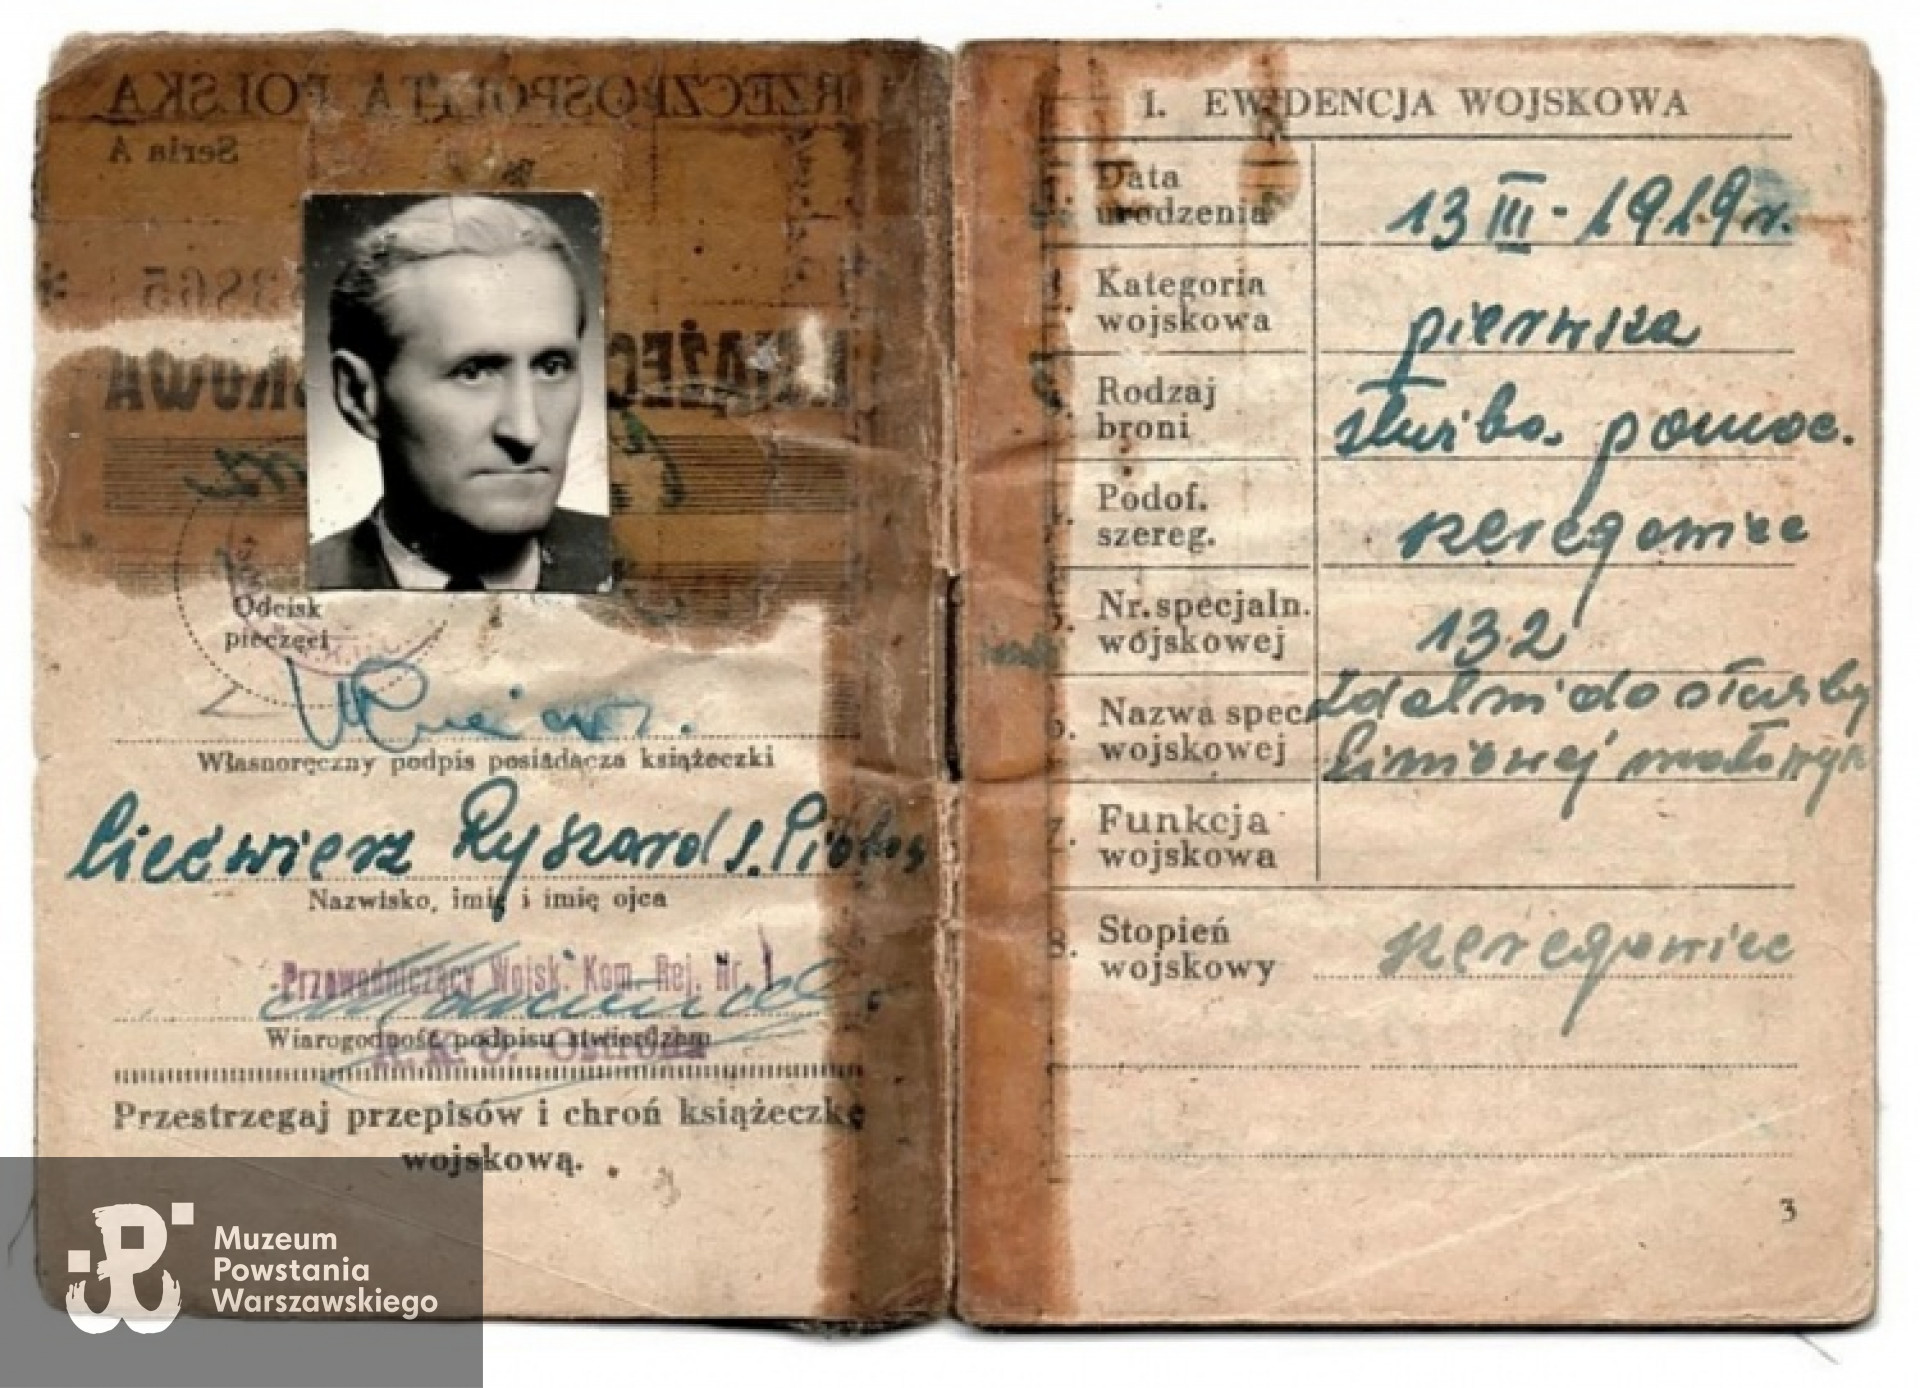 RZECZPOSPOLITA POLSKA
Seria A
KSIĄŻECZKA WOJSKOWA
Odcisk
pieczęci
Własnoręczny podpis posiadacza książeczki
Ciećwierz Ryszard s. Piotra
Nazwisko, imię i imię ojca
Przewodniczący Wojsk. Kom. Rej. Nr. 1
Wiarogodność podpisu stwierdzam
R.K.U.
Przestrzegaj przepisów i chroń książeczkę
wojskową.
I. EWIDENCJA WOJSKOWA
Data
urodzenia
13 III - 1919 r.
Kategoria
wojskowa
pierwsza
Rodzaj
broni
służba pomoc.
Podof.
szereg.
szeregowiec
5. Nr. specjaln.
wojskowej
132
6. Nazwa spec.
wojskowej
zdolni do służby
liniowej
7. Funkcja
wojskowa
8. Stopień
wojskowy
szeregowiec
3
Muzeum
Powstania
Warszawskiego